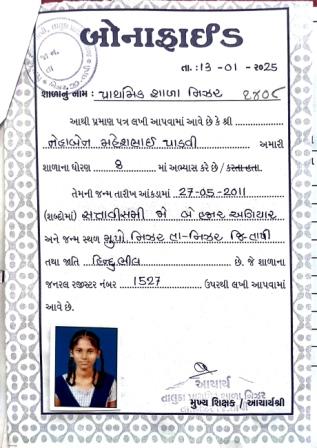 બોનાફાઈડ
તા. : 13 - 01 - 2025
શાળાનું નામ : પ્રાથમિક શાળા નિઝર
આથી પ્રમાણ પત્ર લખી આપવામાં આવે છે કે શ્રી
નેહાબેન મહેશભાઈ પાડવી અમારી
શાળાના ધોરણ 8 માં અભ્યાસ કરે છે / કરતા હતા.
તેમની જન્મ તારીખ આંકડામાં 27-05-2011
(શબ્દોમાં) સત્તાવીસમી મે બે હજાર અગિયાર
અને જન્મ સ્થળ મુ.પો નિઝર તા-નિઝર જિ-તાપી
તથા જાતિ હિન્દુ ભીલ છે. જે શાળાના
જનરલ રજીસ્ટર નંબર 1527 ઉપરથી લખી આપવામાં
આવે છે.
આચાર્ય
તાલુકા શાળા નિઝર
મુખ્ય શિક્ષક / આચાર્યશ્રી